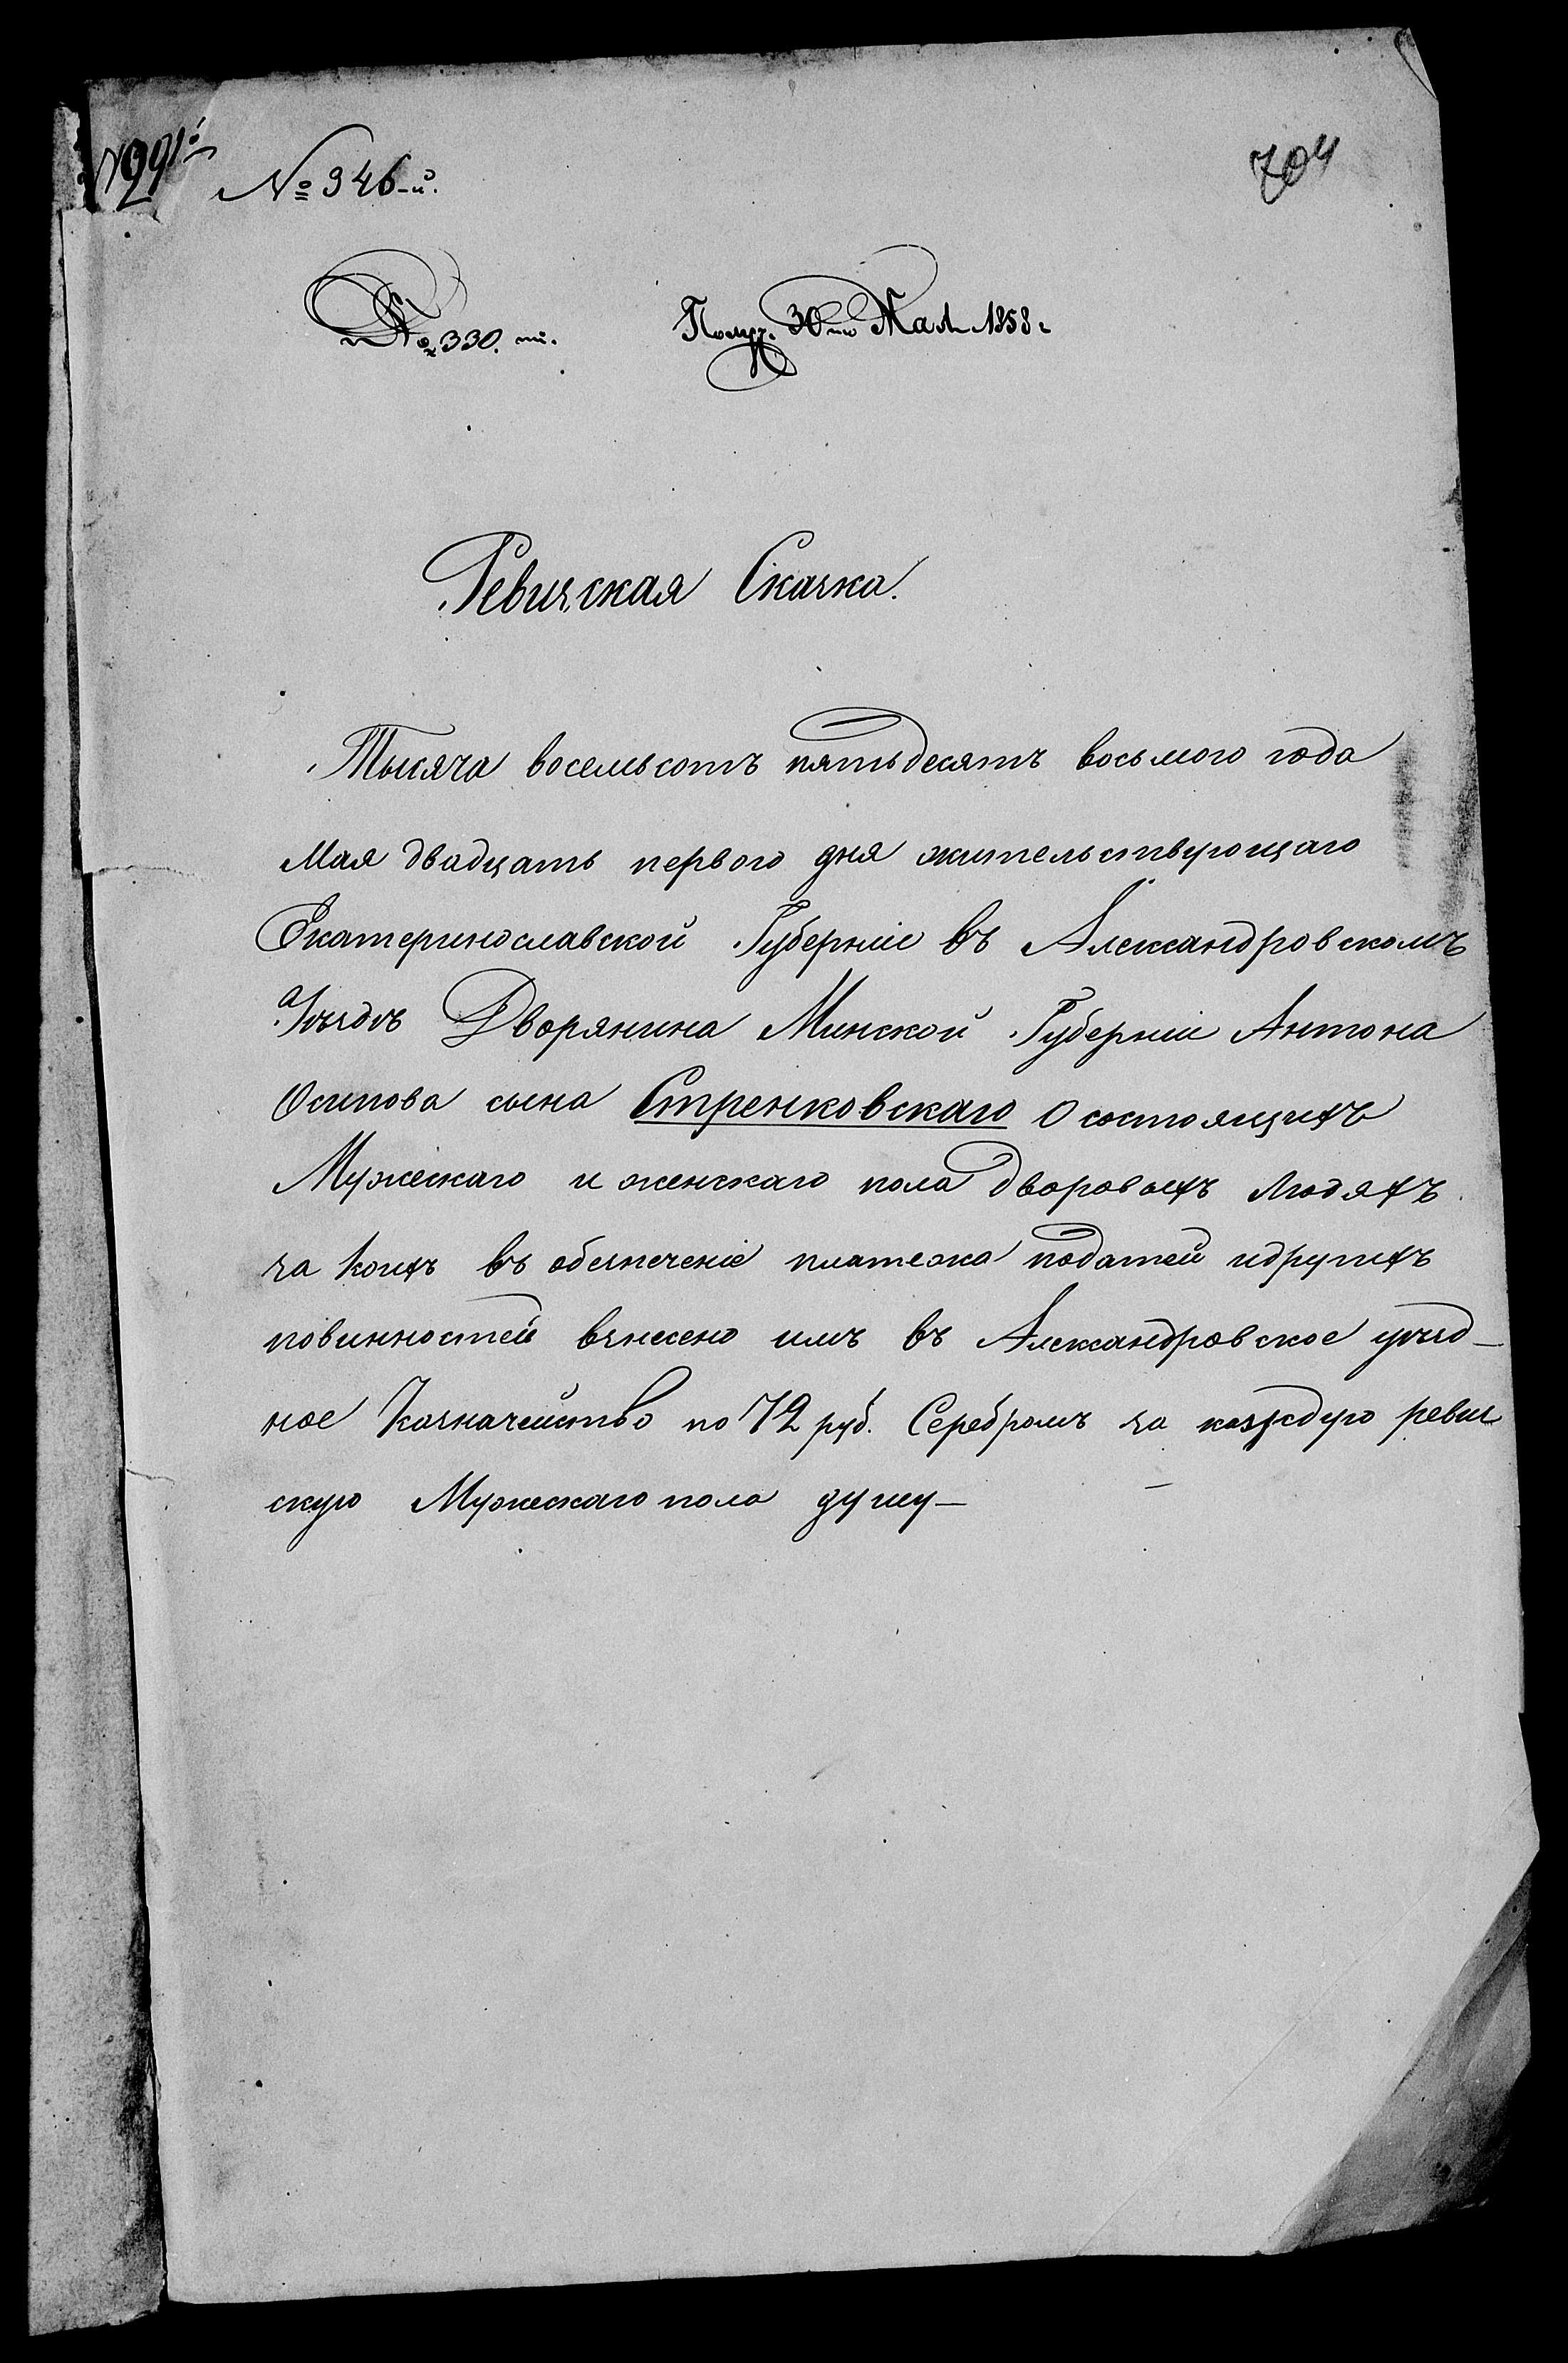 № 346-й.
704
№ 330. й.
Получ. 30го Мая 1858 г
Ревизская Сказка.
Тысяча восемьсотъ пятьдесятъ восьмого года
Мая двадцать первого дня жительствующаго
Екатеринославской Губерніи въ Александровскомъ
Уѣздѣ Дворянина Минской Губерніи Антона
Осипова сына Стренковскаго О состоящихъ
Мужескаго и женскаго пола Дворовыхъ Людяхъ
за коихъ въ обезпеченіе платежа податей идругихъ
повинностей внесено имъ въ Александровское уѣзд-
ное Казначейство по 72 руб. Серебромъ за каждую реви
скую Мужескаго пола душу-